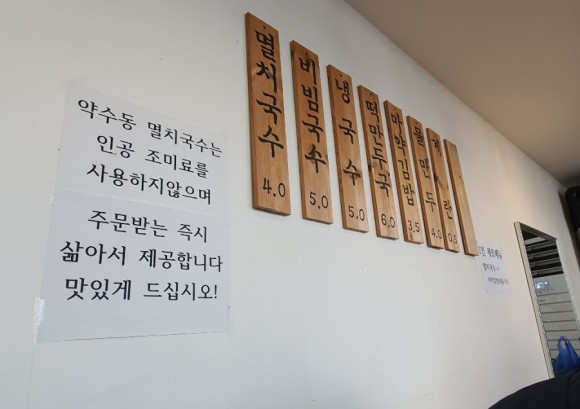 약수동 멸치국수는
인공 조미료를
사용하지않으며
주문받는 즉시
삶아서 제공합니다
맛있게 드십시오!
멸치국수 4.0
비빔국수 5.0
냉국수 5.0
떡만두국 6.0
마약김밥 3.5
물만두 4.0
계란 0.5
멸치국수